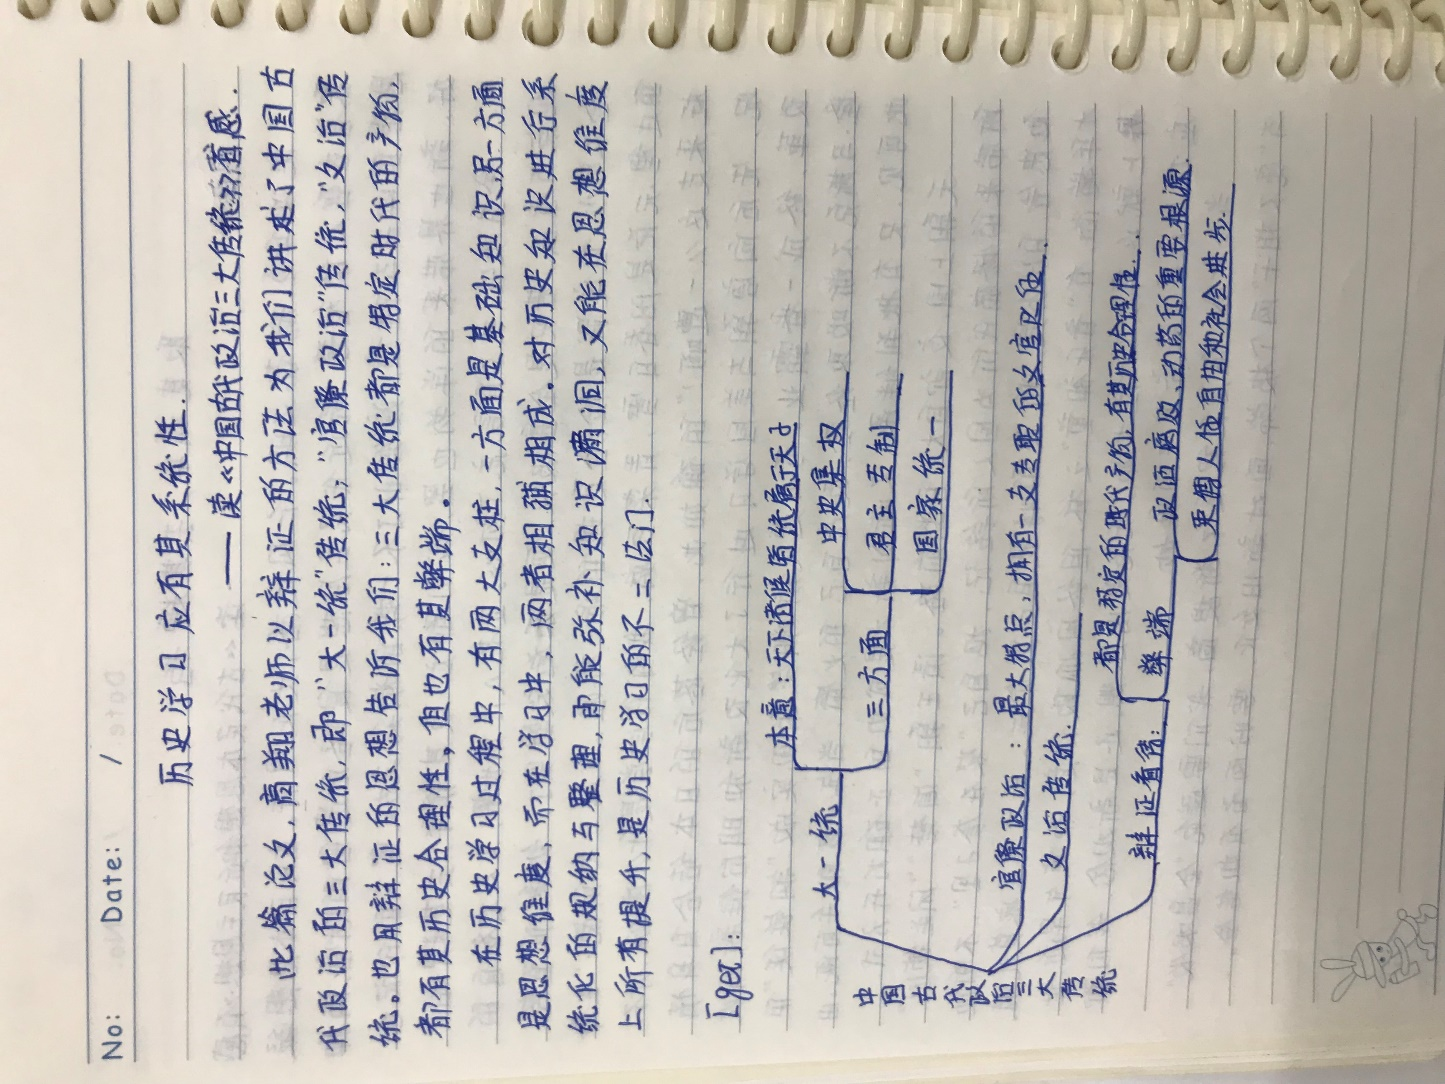 No:
Date: /
历史学习应有其系统性.
——读《中国古代政治三大传统》有感.
此篇论文,高翔老师以辩证的方法为我们讲述了中国古
代政治的三大传统,即"大一统"传统;"官僚政治"传统,"文治"传
统。也用辩证的思想告诉我们:三大传统都是特定时代的产物,
都有其历史合理性,但也有其弊端。
在历史学习过程中,有两大支柱,一方面是基础知识另一方面
是思想维度,而在学习中,两者相辅相成。对历史知识进行系
统化的规纳与整理,即能弥补知识漏洞,又能在思想维度
上所有提升,是历史学习的不二法门.
[gex]:
中国古代政治三大传统
大一统
本意:天下诸侯皆统属于天子
三方面
中央集权
君主专制
国家统一
官僚政治:最大特点,拥有一支专职的文官队伍.
文治传统.
辩证看待:
都是特定的时代产物,有其历史合理性.
弊端
政治腐败、动荡的重要根源.
束缚人性自由和社会进步.